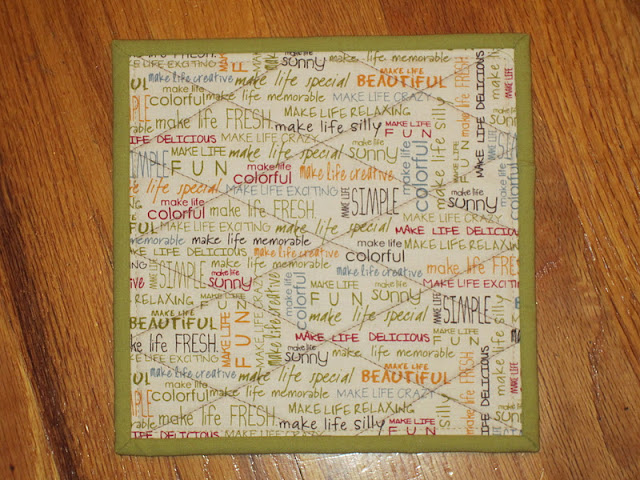 make life FRESH. make life EXCITING make life sunny make life memorable
make life creative make life special MAKE LIFE BEAUTIFUL
make life colorful make life memorable MAKE LIFE CRAZY
make life FRESH. MAKE LIFE RELAXING
LIFE DELICIOUS MAKE LIFE CRAZY make life silly MAKE LIFE FUN
SIMPLE MAKE LIFE FUN make life special make life sunny make life colorful make life silly
make life colorful make life creative
life special MAKE LIFE EXCITING MAKE LIFE SIMPLE make life sunny
make life colorful make life FRESH. MAKE LIFE CRAZY
FUL make life special MAKE LIFE DELICIOUS
memorable make life memorable make life colorful MAKE LIFE RELAXING
MAKE LIFE SIMPLE make life sunny make life memorable make life creative make life FRE
LIFE RELAXING MAKE LIFE FUN MAKE LIFE CRAZY make life creative make life colorful MAKE LIFE FUN make life sunny MAKE LIFE SIMPLE
MAKE LIFE BEAUTIFUL MAKE LIFE FUN make life special make life silly
make life FRESH. MAKE LIFE DELICIOUS MAKE LIFE FUN
LIFE EXCITING make life sunny make life memorable
make life creative make life special MAKE LIFE BEAUTIFUL
make life colorful make life memorable MAKE LIFE CRAZY
make life FRESH. MAKE LIFE RELAXING LIFE DELICIOUS
LIFE DELICIOUS make life silly MAKE LIFE FUN